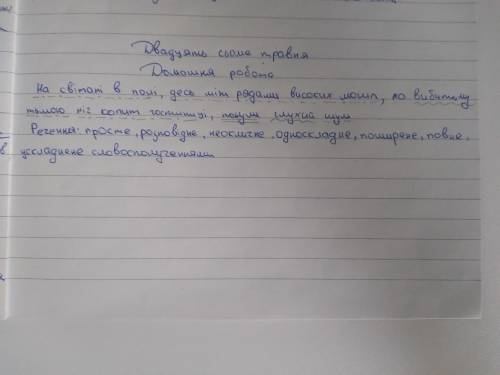 Двадцять сьоме травня
Домашня робота
На світанні в полі, десь між рядами високих могил, по вибитому
тьмою ніг копит гостинці, почули глухий шум
Речення: просте, розповідне, неокличне, односкладне, поширене, повне,
ускладнене словосполученнями.